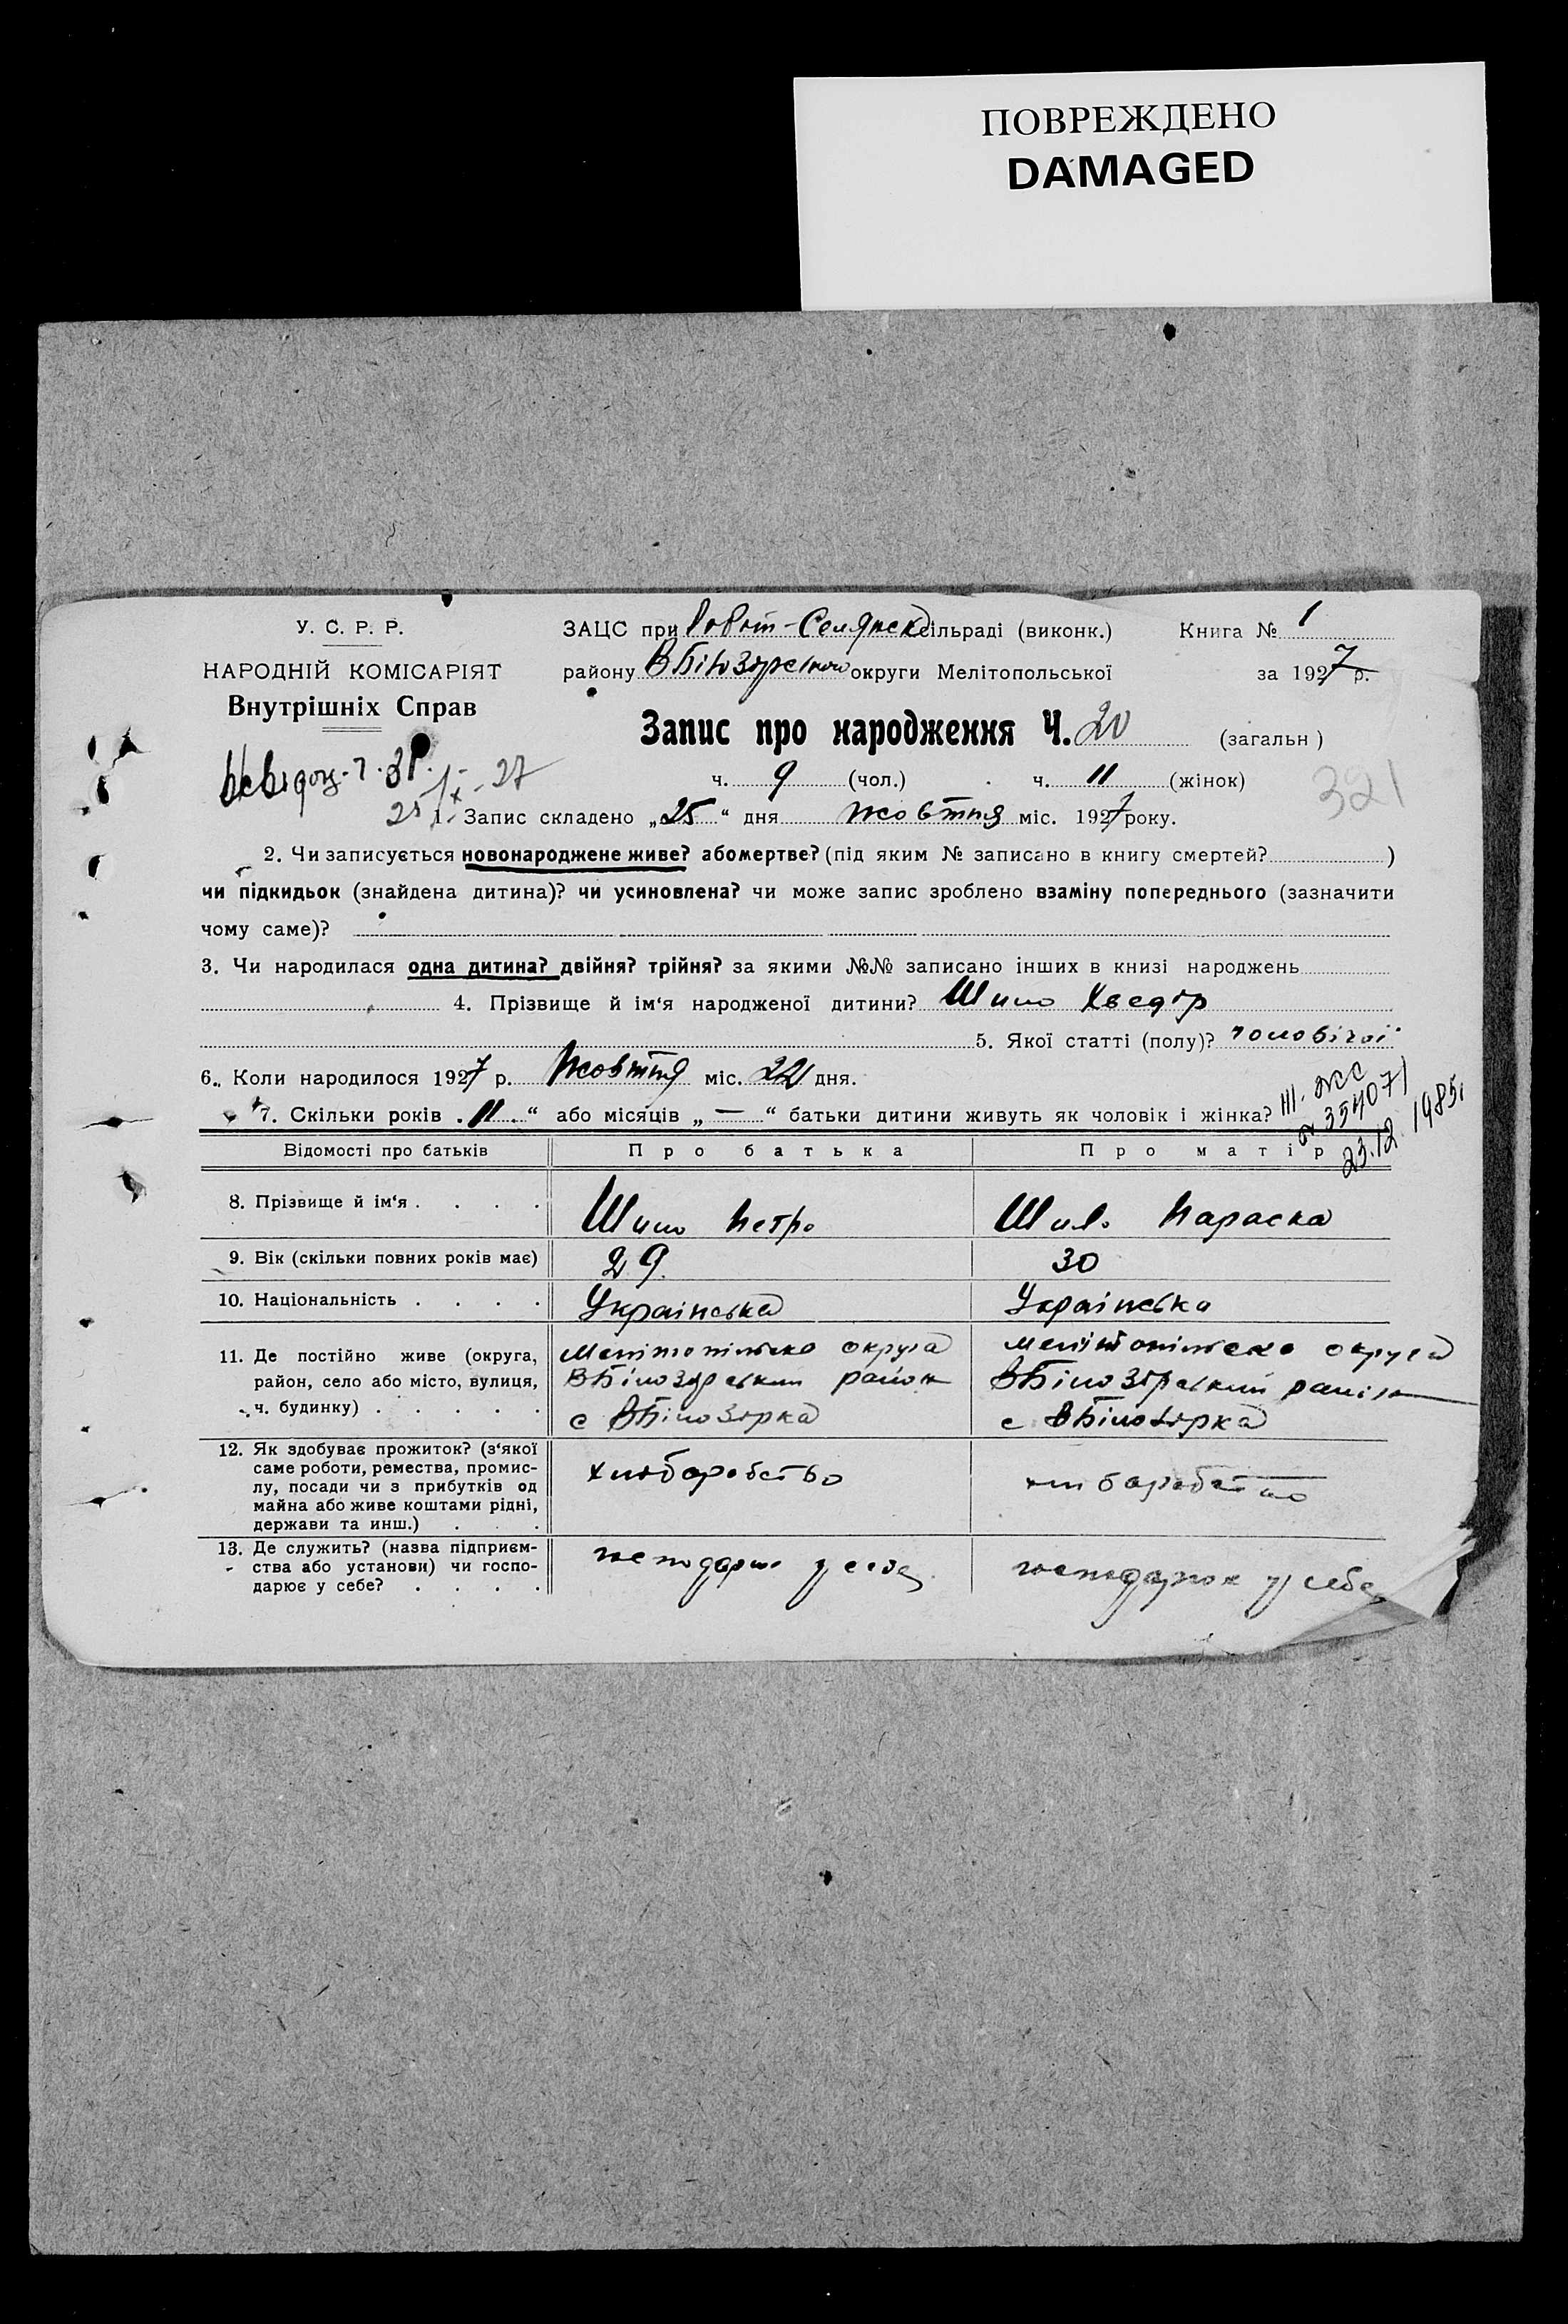 ПОВРЕЖДЕНО
DAMAGED
У. С. Р. Р.
НАРОДНІЙ КОМІСАРІЯТ
Внутрішніх Справ
ЗАЦС при Робот-Селянск сільраді (виконк.) Книга № 1
району ВБілозірського округи Мелітопольської за 1927 р.
Запис про народження Ч. 20 (загальн)
ч. 9 (чол.) ч. 11 (жінок)
321
25/X-27
1. Запис складено „25“ дня жовтня міс. 1927 року.
2. Чи записується новонароджене живе? або мертве? (під яким № записано в книгу смертей? )
чи підкидьок (знайдена дитина)? чи усиновлена? чи може запис зроблено взаміну попереднього (зазначити
чому саме)?
3. Чи народилася одна дитина? двійня? трійня? за якими №№ записано інших в книзі народжень
4. Прізвище й ім'я народженої дитини? Шило Хведір
5. Якої статті (полу)? чоловічої
6. Коли народилося 1927 р. Жовтня міс. 22 дня.
7. Скільки років „11“ або місяців „—“ батьки дитини живуть як чоловік і жінка?
III-ЖС
№ 354071
23.12.1985
Відомості про батьків Про батька Про матір
8. Прізвище й ім'я . . . . Шило Петро Шило Параска
9. Вік (скільки повних років має) 29 30
10. Національність . . . . Українська Українська
11. Де постійно живе (округа, Мелітопільска округа Мелітопільска округа
район, село або місто, вулиця, ВБілозірський район ВБілозірський район
ч. будинку) . . . . . с ВБілозірка с ВБілозірка
12. Як здобуває прожиток? (з'якої
саме роботи, ремества, промис- хліборобство хліборобство
лу, посади чи з прибутків од
майна або живе коштами рідні,
держави та инш.) . . .
13. Де служить? (назва підприєм-
ства або установи) чи госпо- у себе у себе
дарює у себе? . . . .